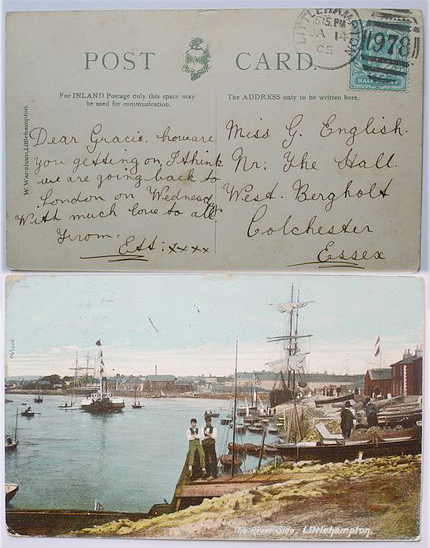 POST CARD.
LITTLEHAMPTON
6.15 PM
JA 14
05
978
For INLAND Postage only this space may
be used for communication.
The ADDRESS only to be written here.
W. Wareham, Littlehampton.
Dear Gracie, howare
you getting on, I think
we are going back to
London on Wednesday.
With much love to all
From.
Ett: xxxx
Miss G. English.
Nr. The Hall.
West. Bergholt
Colchester
Essex
The River Side, Littlehampton.